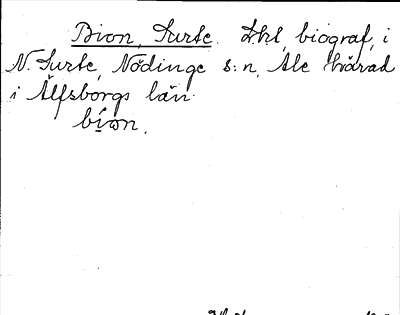 Bion, Surte. Lkl, biograf, i
N. Surte, Nödinge s:n, Ale härad
i Älfsborgs län.
bíon.